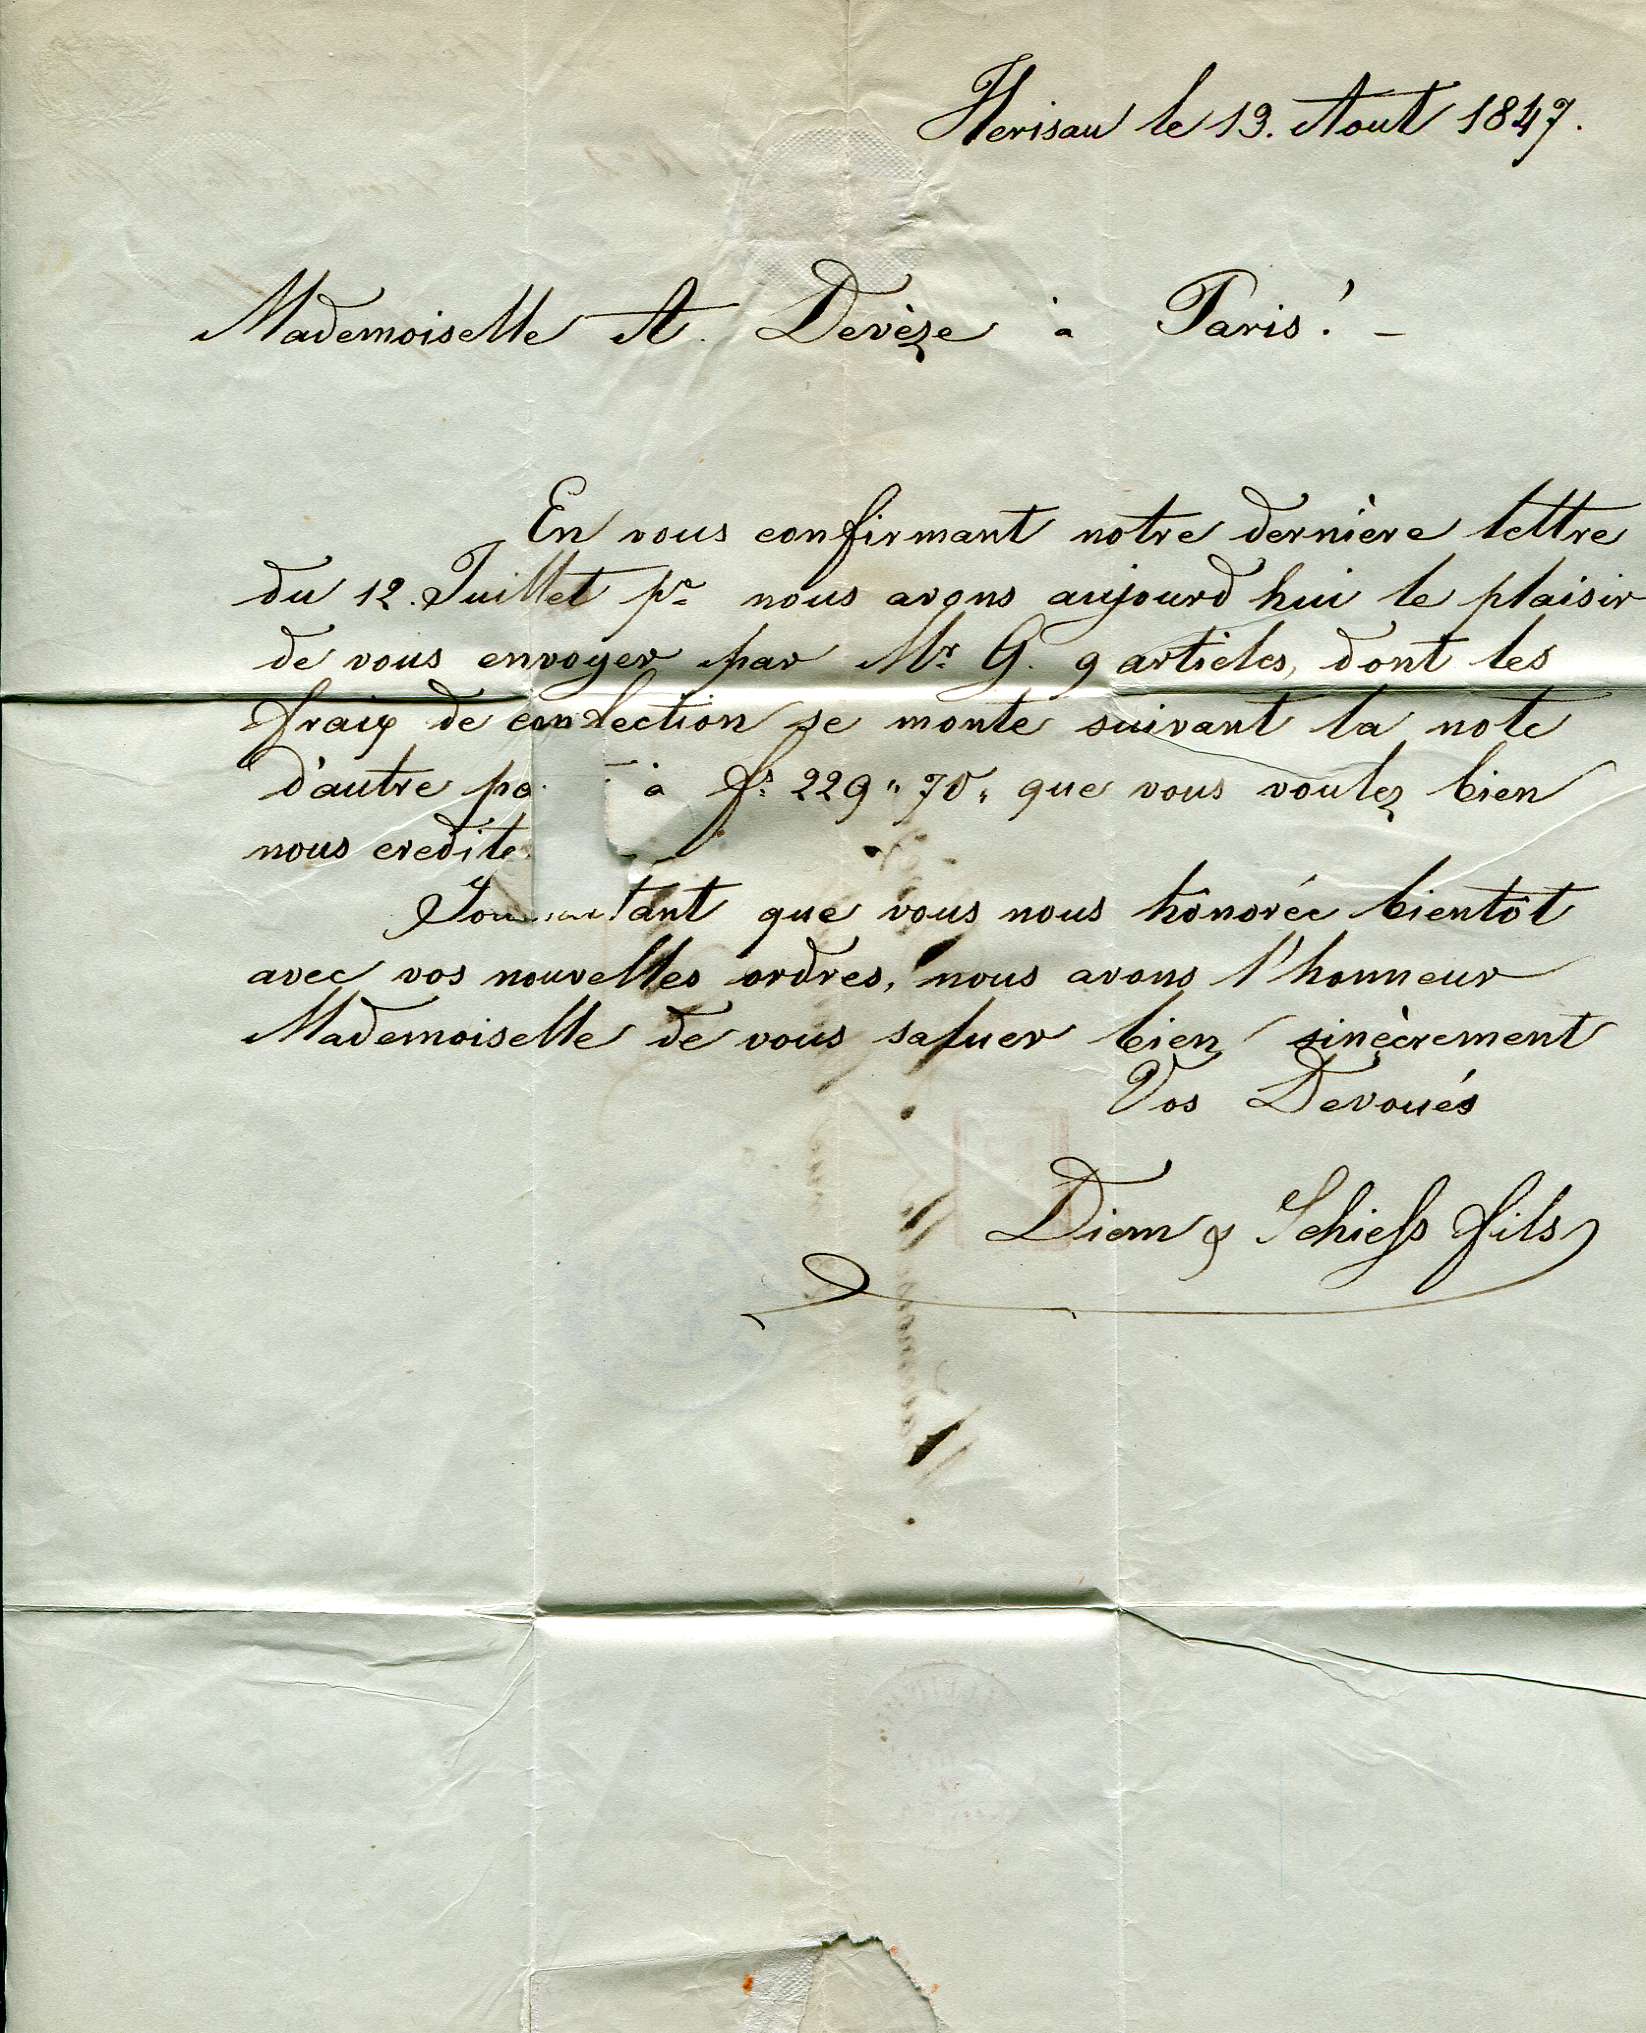 Herisau le 13. Aout 1847.
Mademoiselle A. Devèze à Paris! –
En vous confirmant notre dernière lettre
du 12. Juillet pr nous avons aujourd'hui le plaisir
de vous envoyer par Mr. G. 9 articles, dont les
fraix de confection se monte suivant la note
d'autre pa à fs. 229 " 70 " que vous voulez bien
nous credite
tant que vous nous honorée bientôt
avec vos nouvelles ordres, nous avons l'honneur
Mademoiselle de vous saluer bien sincèrement
Vos Devoués
Diem & Schiefs fils